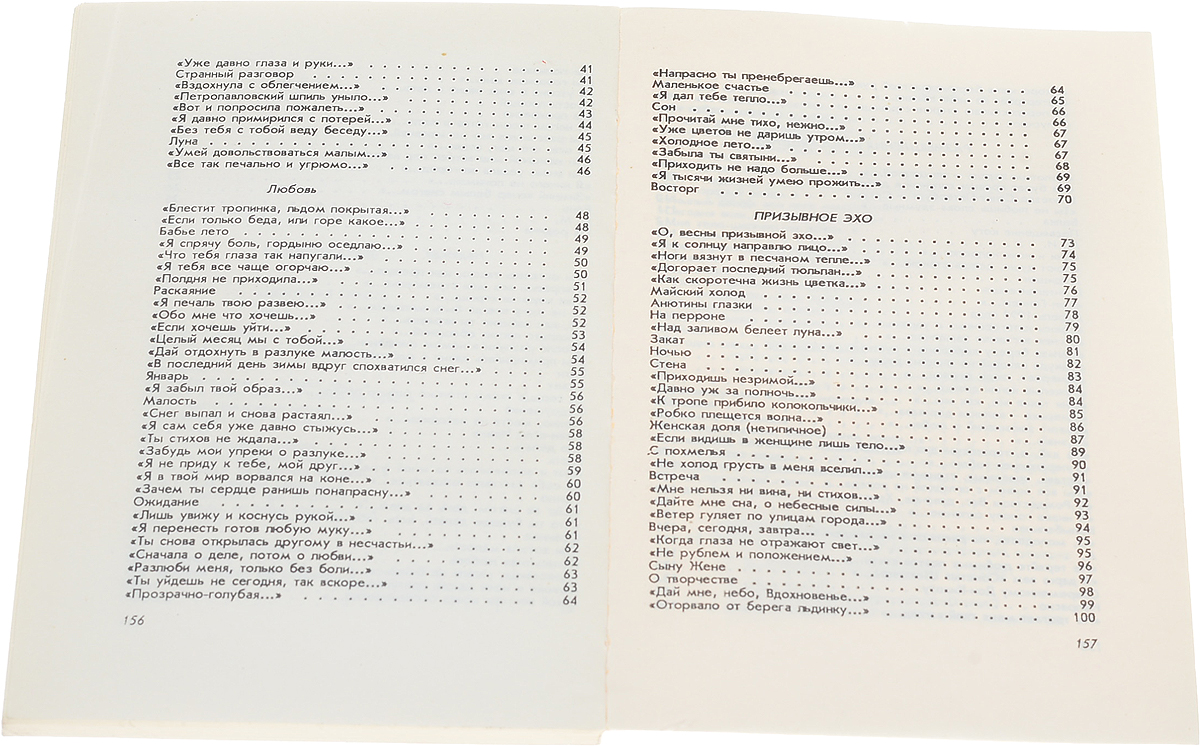 «Уже давно глаза и руки...» . . . . . . . . . . 41
Странный разговор . . . . . . . . . . 41
«Вздохнула с облегчением...» . . . . . . . . . . 42
«Петропавловский шпиль уныло...» . . . . . . . . . . 42
«Вот и попросила пожалеть...» . . . . . . . . . . 43
«Я давно примирился с потерей...» . . . . . . . . . . 44
«Без тебя с тобой веду беседу...» . . . . . . . . . . 45
Луна . . . . . . . . . . 45
«Умей довольствоваться малым...» . . . . . . . . . . 46
«Все так печально и угрюмо...» . . . . . . . . . . 46
Любовь
«Блестит тропинка, льдом покрытая...» . . . . . . . . . . 48
«Если только беда, или горе какое...» . . . . . . . . . . 48
Бабье лето . . . . . . . . . . 49
«Я спрячу боль, гордыню оседлаю...» . . . . . . . . . . 49
«Что тебя глаза так напугали...» . . . . . . . . . . 50
«Я тебя все чаще огорчаю...» . . . . . . . . . . 50
«Полдня не приходила...» . . . . . . . . . . 51
Раскаяние . . . . . . . . . . 52
«Я печаль твою развею...» . . . . . . . . . . 52
«Обо мне что хочешь...» . . . . . . . . . . 52
«Если хочешь уйти...» . . . . . . . . . . 53
«Целый месяц мы с тобой...» . . . . . . . . . . 54
«Дай отдохнуть в разлуке малость...» . . . . . . . . . . 54
«В последний день зимы вдруг спохватился снег...» . . . . . . . . . . 55
Январь . . . . . . . . . . 55
«Я забыл твой образ...» . . . . . . . . . . 56
Малость . . . . . . . . . . 56
«Снег выпал и снова растаял...» . . . . . . . . . . 56
«Я сам себя уже давно стыжусь...» . . . . . . . . . . 58
«Ты стихов не ждала...» . . . . . . . . . . 58
«Забудь мои упреки о разлуке...» . . . . . . . . . . 58
«Я не приду к тебе, мой друг...» . . . . . . . . . . 59
«Я в твой мир ворвался на коне...» . . . . . . . . . . 60
«Зачем ты сердце ранишь понапрасну...» . . . . . . . . . . 60
Ожидание . . . . . . . . . . 61
«Лишь увижу и коснусь рукой...» . . . . . . . . . . 61
«Я перенесть готов любую муку...» . . . . . . . . . . 61
«Ты снова открылась другому в несчастьи...» . . . . . . . . . . 62
«Сначала о деле, потом о любви...» . . . . . . . . . . 62
«Разлюби меня, только без боли...» . . . . . . . . . . 63
«Ты уйдешь не сегодня, так вскоре...» . . . . . . . . . . 63
«Прозрачно-голубая...» . . . . . . . . . . 64
156
«Напрасно ты пренебрегаешь...» . . . . . . . . . . 64
Маленькое счастье . . . . . . . . . . 65
«Я дал тебе тепло...» . . . . . . . . . . 66
Сон . . . . . . . . . . 66
«Прочитай мне тихо, нежно...» . . . . . . . . . . 67
«Уже цветов не даришь утром...» . . . . . . . . . . 67
«Холодное лето...» . . . . . . . . . . 67
«Забыла ты святыни...» . . . . . . . . . . 68
«Приходить не надо больше...» . . . . . . . . . . 69
«Я тысячи жизней умею прожить...» . . . . . . . . . . 69
Восторг . . . . . . . . . . 70
ПРИЗЫВНОЕ ЭХО
«О, весны призывной эхо...» . . . . . . . . . . 73
«Я к солнцу направлю лицо...» . . . . . . . . . . 74
«Ноги вязнут в песчаном тепле...» . . . . . . . . . . 75
«Догорает последний тюльпан...» . . . . . . . . . . 75
«Как скоротечна жизнь цветка...» . . . . . . . . . . 76
Майский холод . . . . . . . . . . 77
Анютины глазки . . . . . . . . . . 78
На перроне . . . . . . . . . . 79
«Над заливом белеет луна...» . . . . . . . . . . 80
Закат . . . . . . . . . . 81
Ночью . . . . . . . . . . 82
Стена . . . . . . . . . . 83
«Приходишь незримой...» . . . . . . . . . . 84
«Давно уж за полночь...» . . . . . . . . . . 84
«К тропе прибило колокольчики...» . . . . . . . . . . 85
«Робко плещется волна...» . . . . . . . . . . 86
Женская доля (нетипичное) . . . . . . . . . . 87
«Если видишь в женщине лишь тело...» . . . . . . . . . . 89
С похмелья . . . . . . . . . . 90
«Не холод грусть в меня вселил...» . . . . . . . . . . 91
Встреча . . . . . . . . . . 91
«Мне нельзя ни вина, ни стихов...» . . . . . . . . . . 92
«Дайте мне сна, о небесные силы...» . . . . . . . . . . 93
«Ветер гуляет по улицам города...» . . . . . . . . . . 94
Вчера, сегодня, завтра... . . . . . . . . . . 95
«Когда глаза не отражают свет...» . . . . . . . . . . 95
«Не рублем и положением...» . . . . . . . . . . 96
Сыну Жене . . . . . . . . . . 97
О творчестве . . . . . . . . . . 98
«Дай мне, небо, Вдохновенье...» . . . . . . . . . . 99
«Оторвало от берега льдинку...» . . . . . . . . . . 100
157